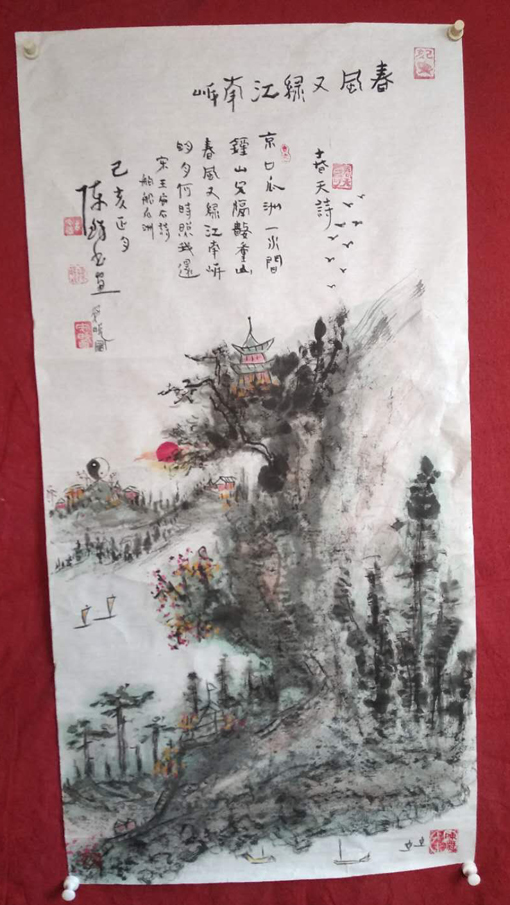 春風又绿江南岸
春天詩
京口瓜洲一水間
鍾山只隔數重山
春風又绿江南岸
明月何時照我還
宋王安石詩
船舶瓜洲
己亥正月
陈